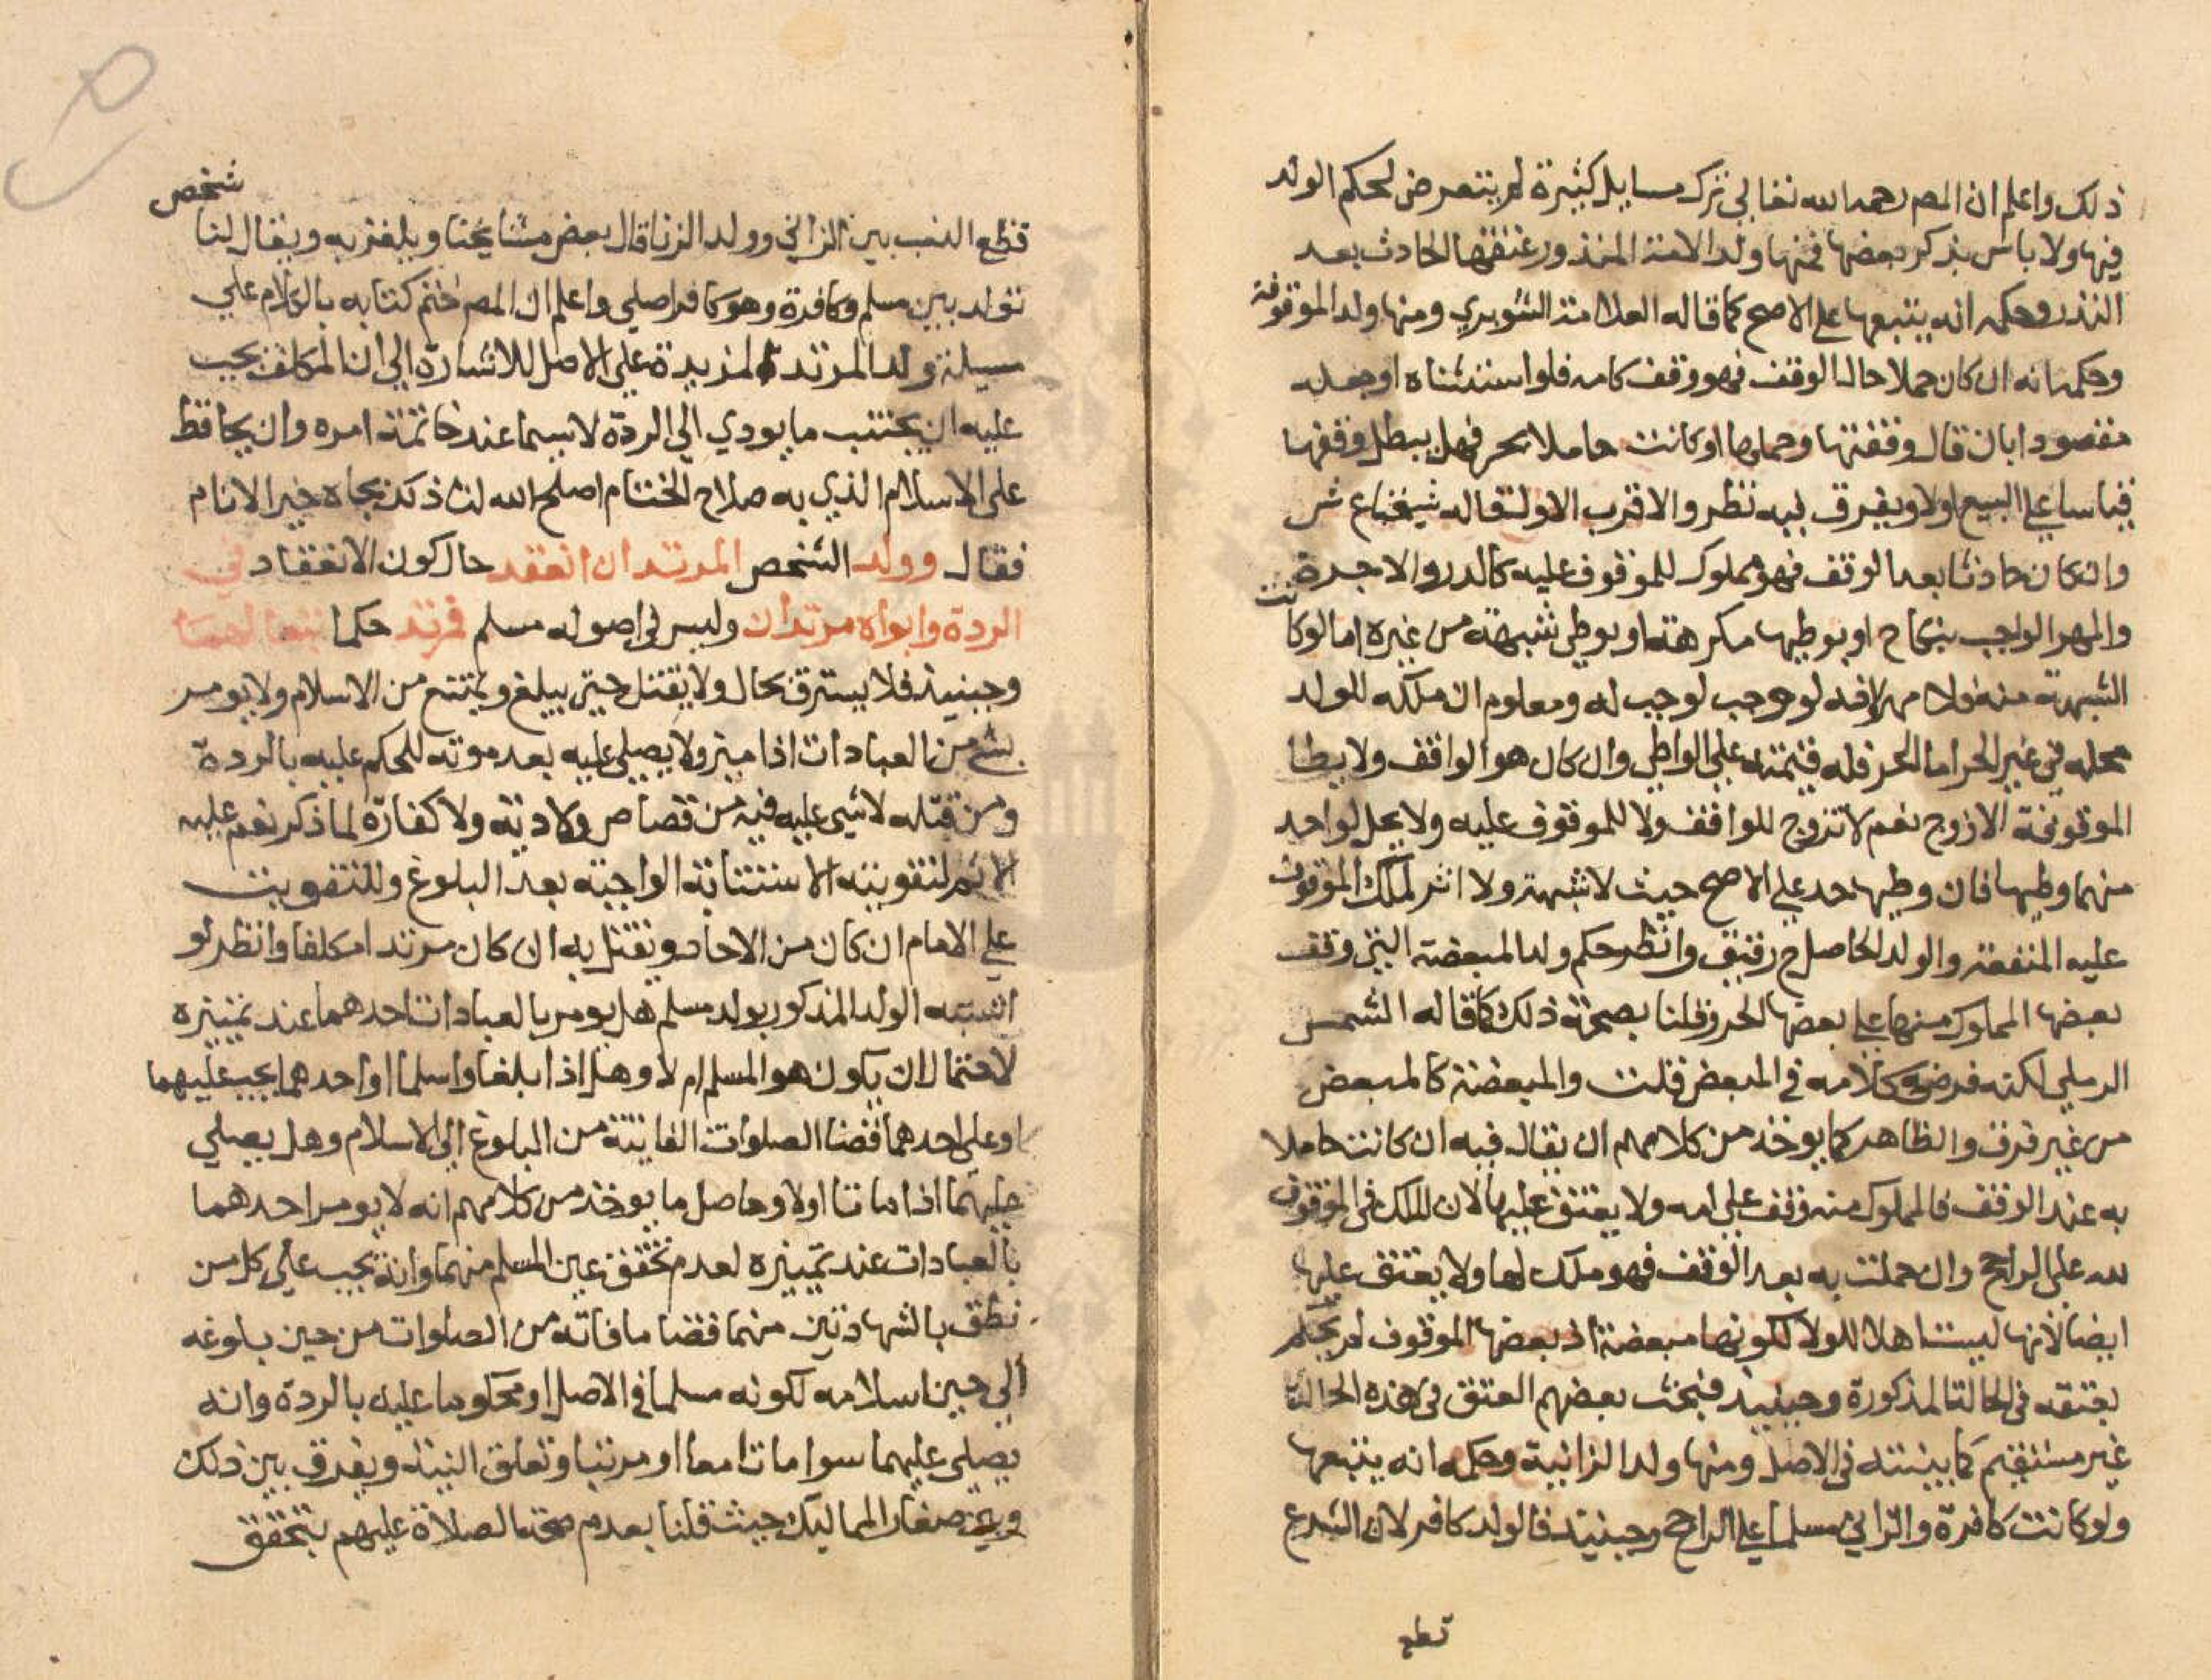 ذلك واعلم ان المص رحمه الله تعالى ترك مسايل كثيرة لم يتعرض لحكم الولد
فيها ولا باس بذكر بعضها فمنها ولد الامة المنذور عتقها الحادث بعد
النذر وحكمه انه يتبعها على الاصح كما قاله العلامة الشوبري ومنها ولد الموقوفة
وحكمه انه ان كان حملا حال الوقف فهو وقف كامه فلو استثناه او جعله
مقصودا بان قال وقفتها وحملها او كانت حاملا بحر فهل يبطل وقفها
قياسا على البيع اولا ويفرق فيه نظر والاقرب الاول قاله شيخنا ع ش
وان كان حادثا بعد الوقف فهو مملوك للموقوف عليه كالدر والاجرة
والمهر الواجب بنكاح او بوطيها مكرهة او بوطي شبهة من غيره اما لو كانت
الشبهة منه فلا مهر لانه لو وجب لوجب له ومعلوم ان ملكه للولد
محله في غير الحر اما الحر فله قيمته على الواطي وان كان هو الواقف ولا يطا
الموقوفة الا زوج نعم لا تزوج للواقف ولا للموقوف عليه ولا يحل لواحد
منهما وطيها فان وطيها حد على الاصح حيث لا شبهة ولا اثر لملك الموقوف
عليه المنفعة والولد الحاصل ح رقيق وانظر حكم ولد المبعضة التي وقف
بعضها المملوك منها على بعضها الحر وقلنا بصحة ذلك كما قاله الشمس
الرملي لكنه فرض كلامه في المبعض قلت والمبعضة كالمبعض
من غير فرق والظاهر كما يوخذ من كلامهم ان يقال فيه ان كانت حاملا
به عند الوقف فالمملوك منه وقف على امه ولا يعتق عليها لان الملك في الموقوف
لله على الراجح وان حملت به بعد الوقف فهو ملك لها ولا يعتق عليها
ايضا لانها ليست اهلا للولا لكونها مبعضة اذ بعضها الموقوف لم يحكم
بعتقه في الحالة المذكورة وحينيذ فبحث بعضهم العتق في هذه الحالة
غير مستقيم كما بينته في الاصل ومنها ولد الزانية وحكمه انه يتبعها
ولو كانت كافرة والزاني مسلما على الراجح وحينيذ فالولد كافر لان الشرع
قطع
قطع النسب بين الزاني وولد الزنا قال بعض مشايخنا ويلغز به ويقال لنا شخص
تولد بين مسلم وكافرة وهو كافر اصلي واعلم ان المص ختم كتابه بالكلام على
مسيلة ولد المرتد المزيدة على الاصل للاشارة الى ان المكلف يجب
عليه ان يجتنب ما يودي الى الردة لاسيما عند خاتمة امره وان يحافظ
على الاسلام الذي به صلاح الختام اصلح الله لنا ذلك بجاه خير الانام
فقال وولد الشخص المرتد ان انعقد حال كون الانعقاد في
الردة وابواه مرتدان وليس في اصوله مسلم فمرتد حكما تبعا لهما
وحينيذ فلا يسترق بحال ولا يقتل حتى يبلغ ويمتنع من الاسلام ولا يومر
بشي من العبادات اذا ميز ولا يصلى عليه بعد موته للحكم عليه بالردة
ومن قتله لا شي عليه فيه من قصاص ولا دية ولا كفارة لما ذكر نعم عليه
الاثم لتفويته الاستتابة الواجبة بعد البلوغ وللتفويت
على الامام ان كان من الاحاد ويقتل به ان كان مرتدا مكلفا وانظر لو
اشتبه الولد المذكور بولد مسلم هل يومر بالعبادات احدهما عند تمييزه
لاحتمال ان يكون هو المسلم ام لا وهل اذا بلغا واسلما او احدهما يجب عليهما
او على احدهما قضا الصلوات الفايتة من البلوغ الى الاسلام وهل يصلي
عليهما اذا ماتا اولا وحاصل ما يوخذ من كلامهم انه لا يومر احدهما
بالعبادات عند تمييزه لعدم تحقق عين المسلم منهما وانه يجب على كل من
نطق بالشهادتين منهما قضا ما فاته من الصلوات من حين بلوغه
الى حين اسلامه لكونه مسلما في الاصل او محكوما عليه بالردة وانه
يصلي عليهما سوا ماتا معا او مرتبا وتعلق النية ويفرق بين ذلك
وبين صغار المماليك حيث قلنا بعدم صحة الصلاة عليهم بتحقق